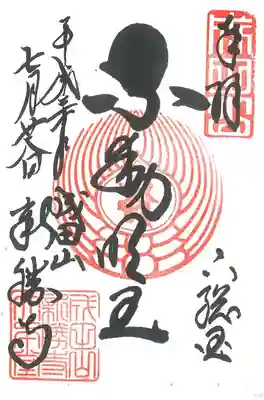 奉拝
下総国
不動明王
成田山
新勝寺
平成三十年
七月廿八日
成田山
新勝寺